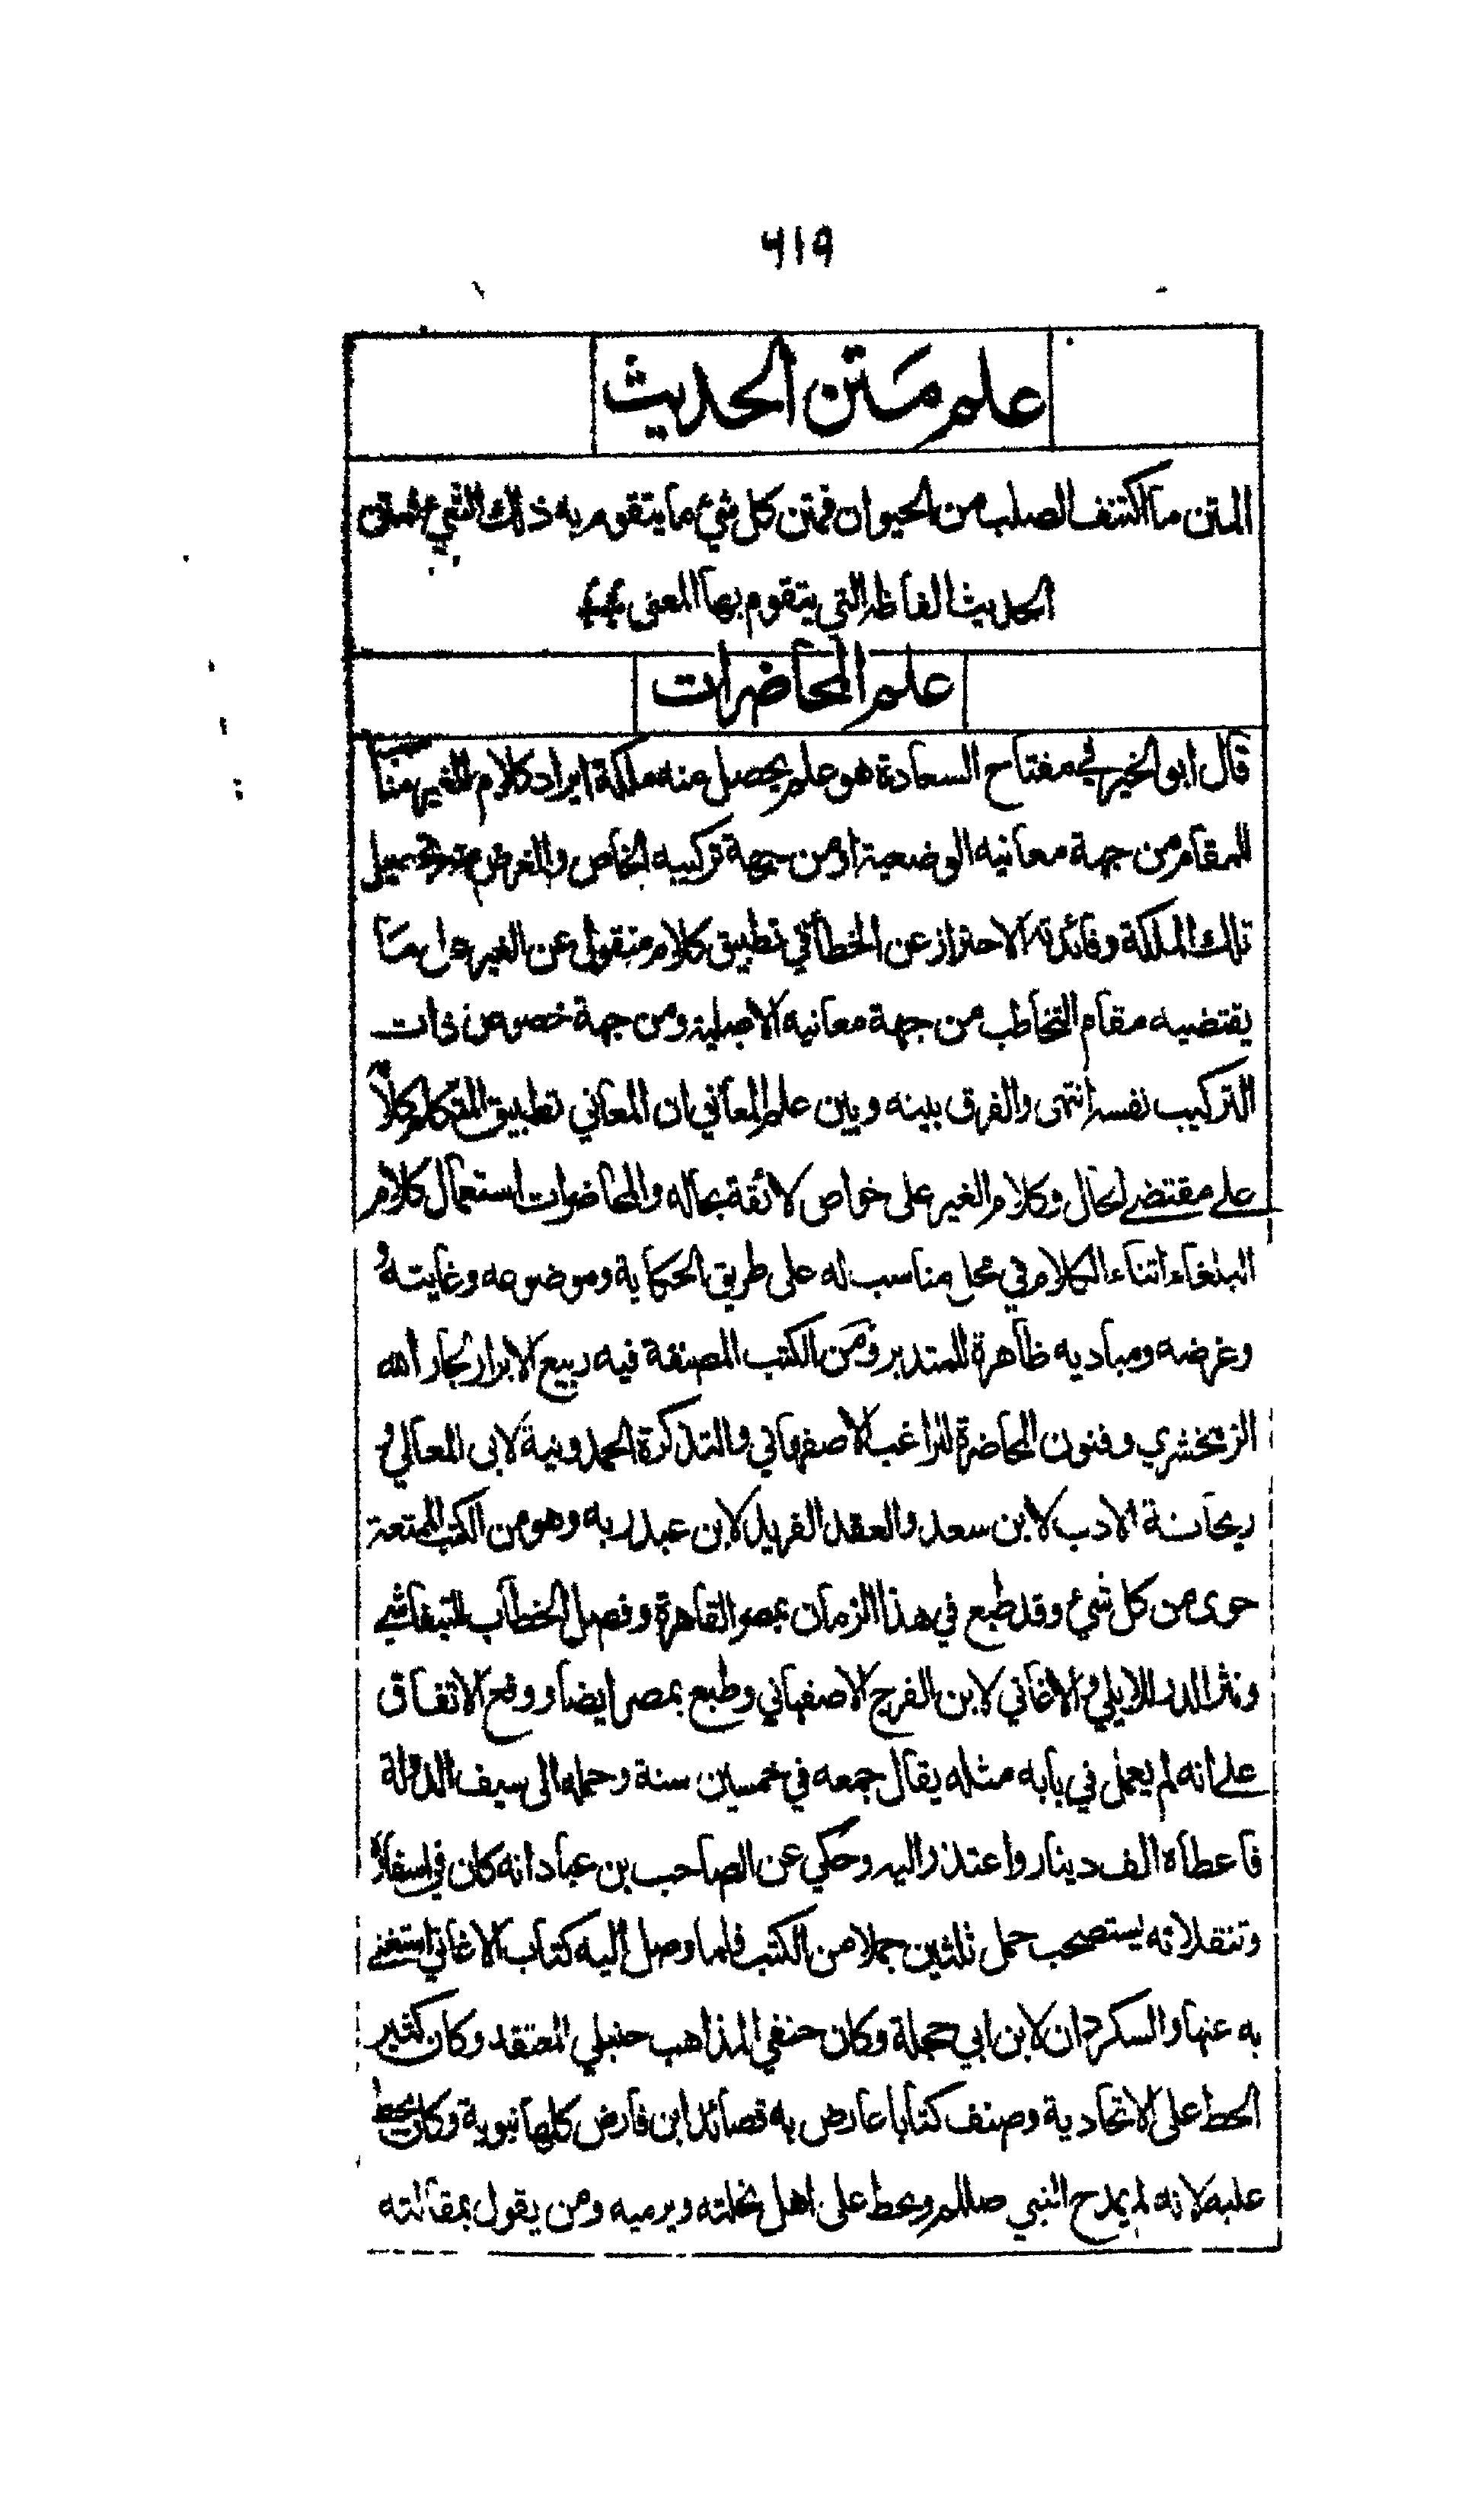 ٦١٩
علم متن الحديث
المتن ما اكتنف الصلب من الحيوان فمتن كل شئ ما يتقوم به ذلك الشئ فمتن
الحديث الفاظه التي يتقوم بها المعنى
علم المحاضرات
قال ابو الخير في مفتاح السعادة هو علم يحصل منه ملكة ايراد كلام للغير مناسبا
للمقام من جهة معانيه الوضعية او من جهة تركيبه الخاص والغرض منه تحصيل
تلك الملكة وفائدته الاحتراز عن الخطأ في تطبيق كلام منقول عن الغير على ما
يقتضيه مقام التخاطب من جهة معانيه الاصلية ومن جهة خصوص ذات
التركيب نفسه انتهى والفرق بينه وبين علم المعاني ان المعاني تطبيق المتكلم كلامه
على مقتضى الحال وكلام الغير على خواص لائقة بحاله والمحاضرات استعمال كلام
البلغاء اثناء الكلام في محل مناسب له على طريق الحكاية وموضوعه وغايته
وغرضه ومباديه ظاهرة للمتدبر ومن الكتب المصنفة فيه ربيع الابرار لجار الله
الزمخشري وفنون المحاضرة للراغب الاصفهاني والتذكرة الحمدونية لابى المعالي و
ريحانة الادب لابن سعد والعقد الفريد لابن عبد ربه وهو من الكتب الممتعة
حوى من كل شئ وقد طبع في هذا الزمان بمصر القاهرة وفصل الخطاب للتيفاشي
ونثر الدر للابلي والاغاني لابن الفرج الاصفهاني وطبع بمصر ايضا ووقع الاتفاق
على انه لم يعمل في بابه مثله يقال جمعه في خمسين سنة وحمله الى سيف الدولة
فاعطاه الف دينار واعتذر اليه وحكي عن الصاحب بن عباد انه كان في اسفاره
وتنقلاته يستصحب حمل ثلثين جملا من الكتب فلما وصل اليه كتاب الاغاني استغنى
به عنها والسكردان لابن ابي حجلة وكان حنفي المذاهب حنبلي المعتقد وكان كثير
الحط على الاتحادية وصنف كتابا عارض به قصائد ابن فارض كلها نبوية وكان يحط
عليه لانه لم يمدح النبي صللم ويحط على اهل نحلته ويرميه ومن يقول بمقالته